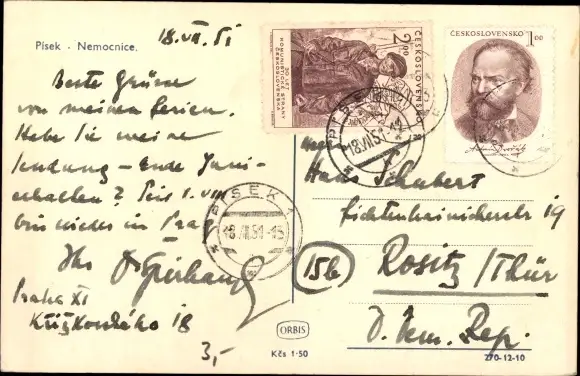 18.VII.51
Písek - Nemocnice.
Beste Grüsse
von meinen Ferien.
Habe Sie meine
Sendung - Ende Juni -
erhalten? Bis 1. VIII
bin nicht in Prag
Ihr
Praha XI
18
3,-
ČESKOSLOVENSKO
2,00
30 LET
KOMUNISTICKÉ STRANY
ČESKOSLOVENSKA
ČESKOSLOVENSKO 1,00
Antonín Dvořák
PÍSEK 1
18.VII.51-13
18.VII.51
Schubert
19
(15b) Rositz/Thür
D. Dem. Rep.
ORBIS
Kčs 1·50
270-12-10